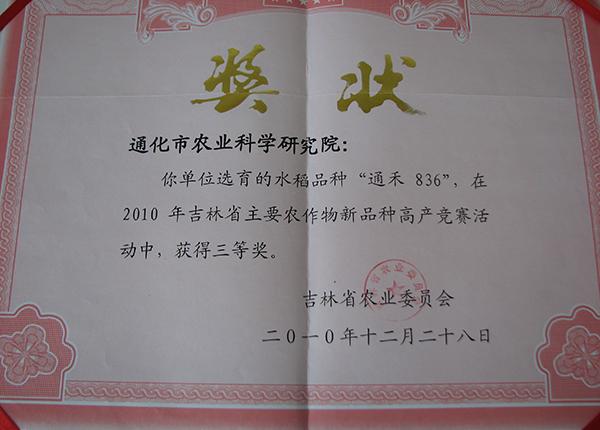 奖状
通化市农业科学研究院：
你单位选育的水稻品种“通禾 836”，在
2010 年吉林省主要农作物新品种高产竞赛活
动中，获得三等奖。
吉林省农业委员会
二〇一〇年十二月二十八日